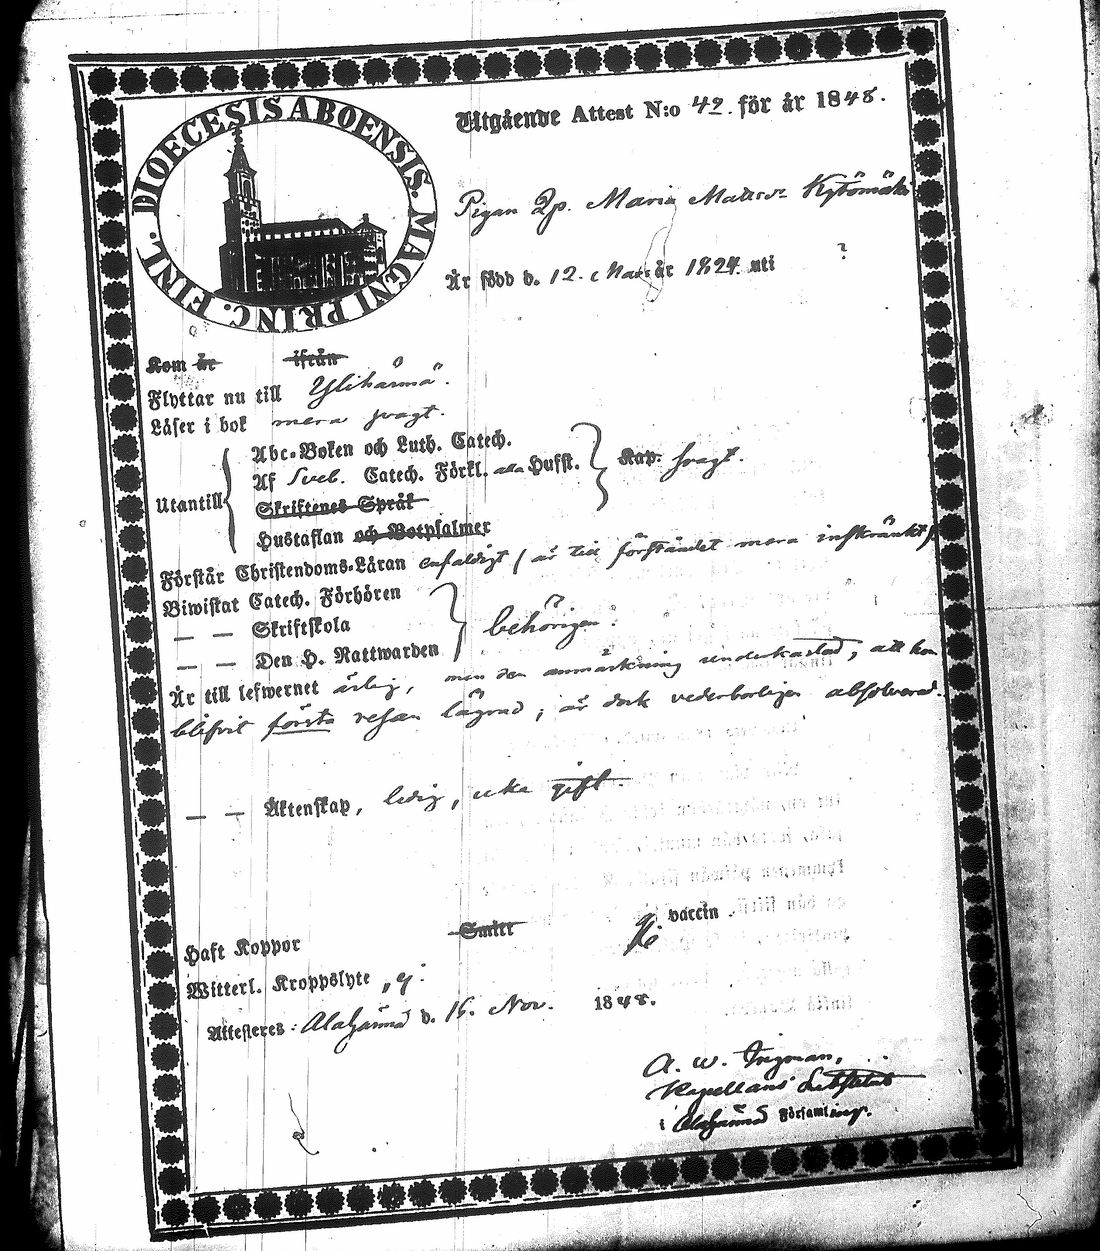 DIOECESIS ABOENSIS. MAGNI PRINC. FINL.
Utgående Attest N:o 42. för år 1848.
Pigan Maria Matsdr Kytömäki
Är född d. 12. Mars år 1824 uti ?
Kom år ifrån
Flyttar nu till Ylihärmä.
Läser i bok mera svagt.
Abc-Boken och Luth. Catech.
Utantill Af Sveb. Catech. Förkl. alla Hufst. Kap. svagt.
Skriftenes Språk
Hustaflan och Botpsalmer
Förstår Christendoms-Läran enfaldigt (är till förståndet mera inskränkt)
Biwistat Catech. Förhören
— — Skriftskola behörigen.
— — Den H. Nattwarden
Är till lefwernet ärlig, men den anmärkning underkastad, att hon
blifvit första resan lägrad; är dock vederbörligen absolverad.
— — Äktenskap, ledig, icke gift
Haft Koppor Smitt vaccin
Witterl. Kroppslyte
Attesteres Alahärmä d. 16. Nov. 1848.
A. W. Ingman,
Kapellans Substitut
i Alahärmä Församling.